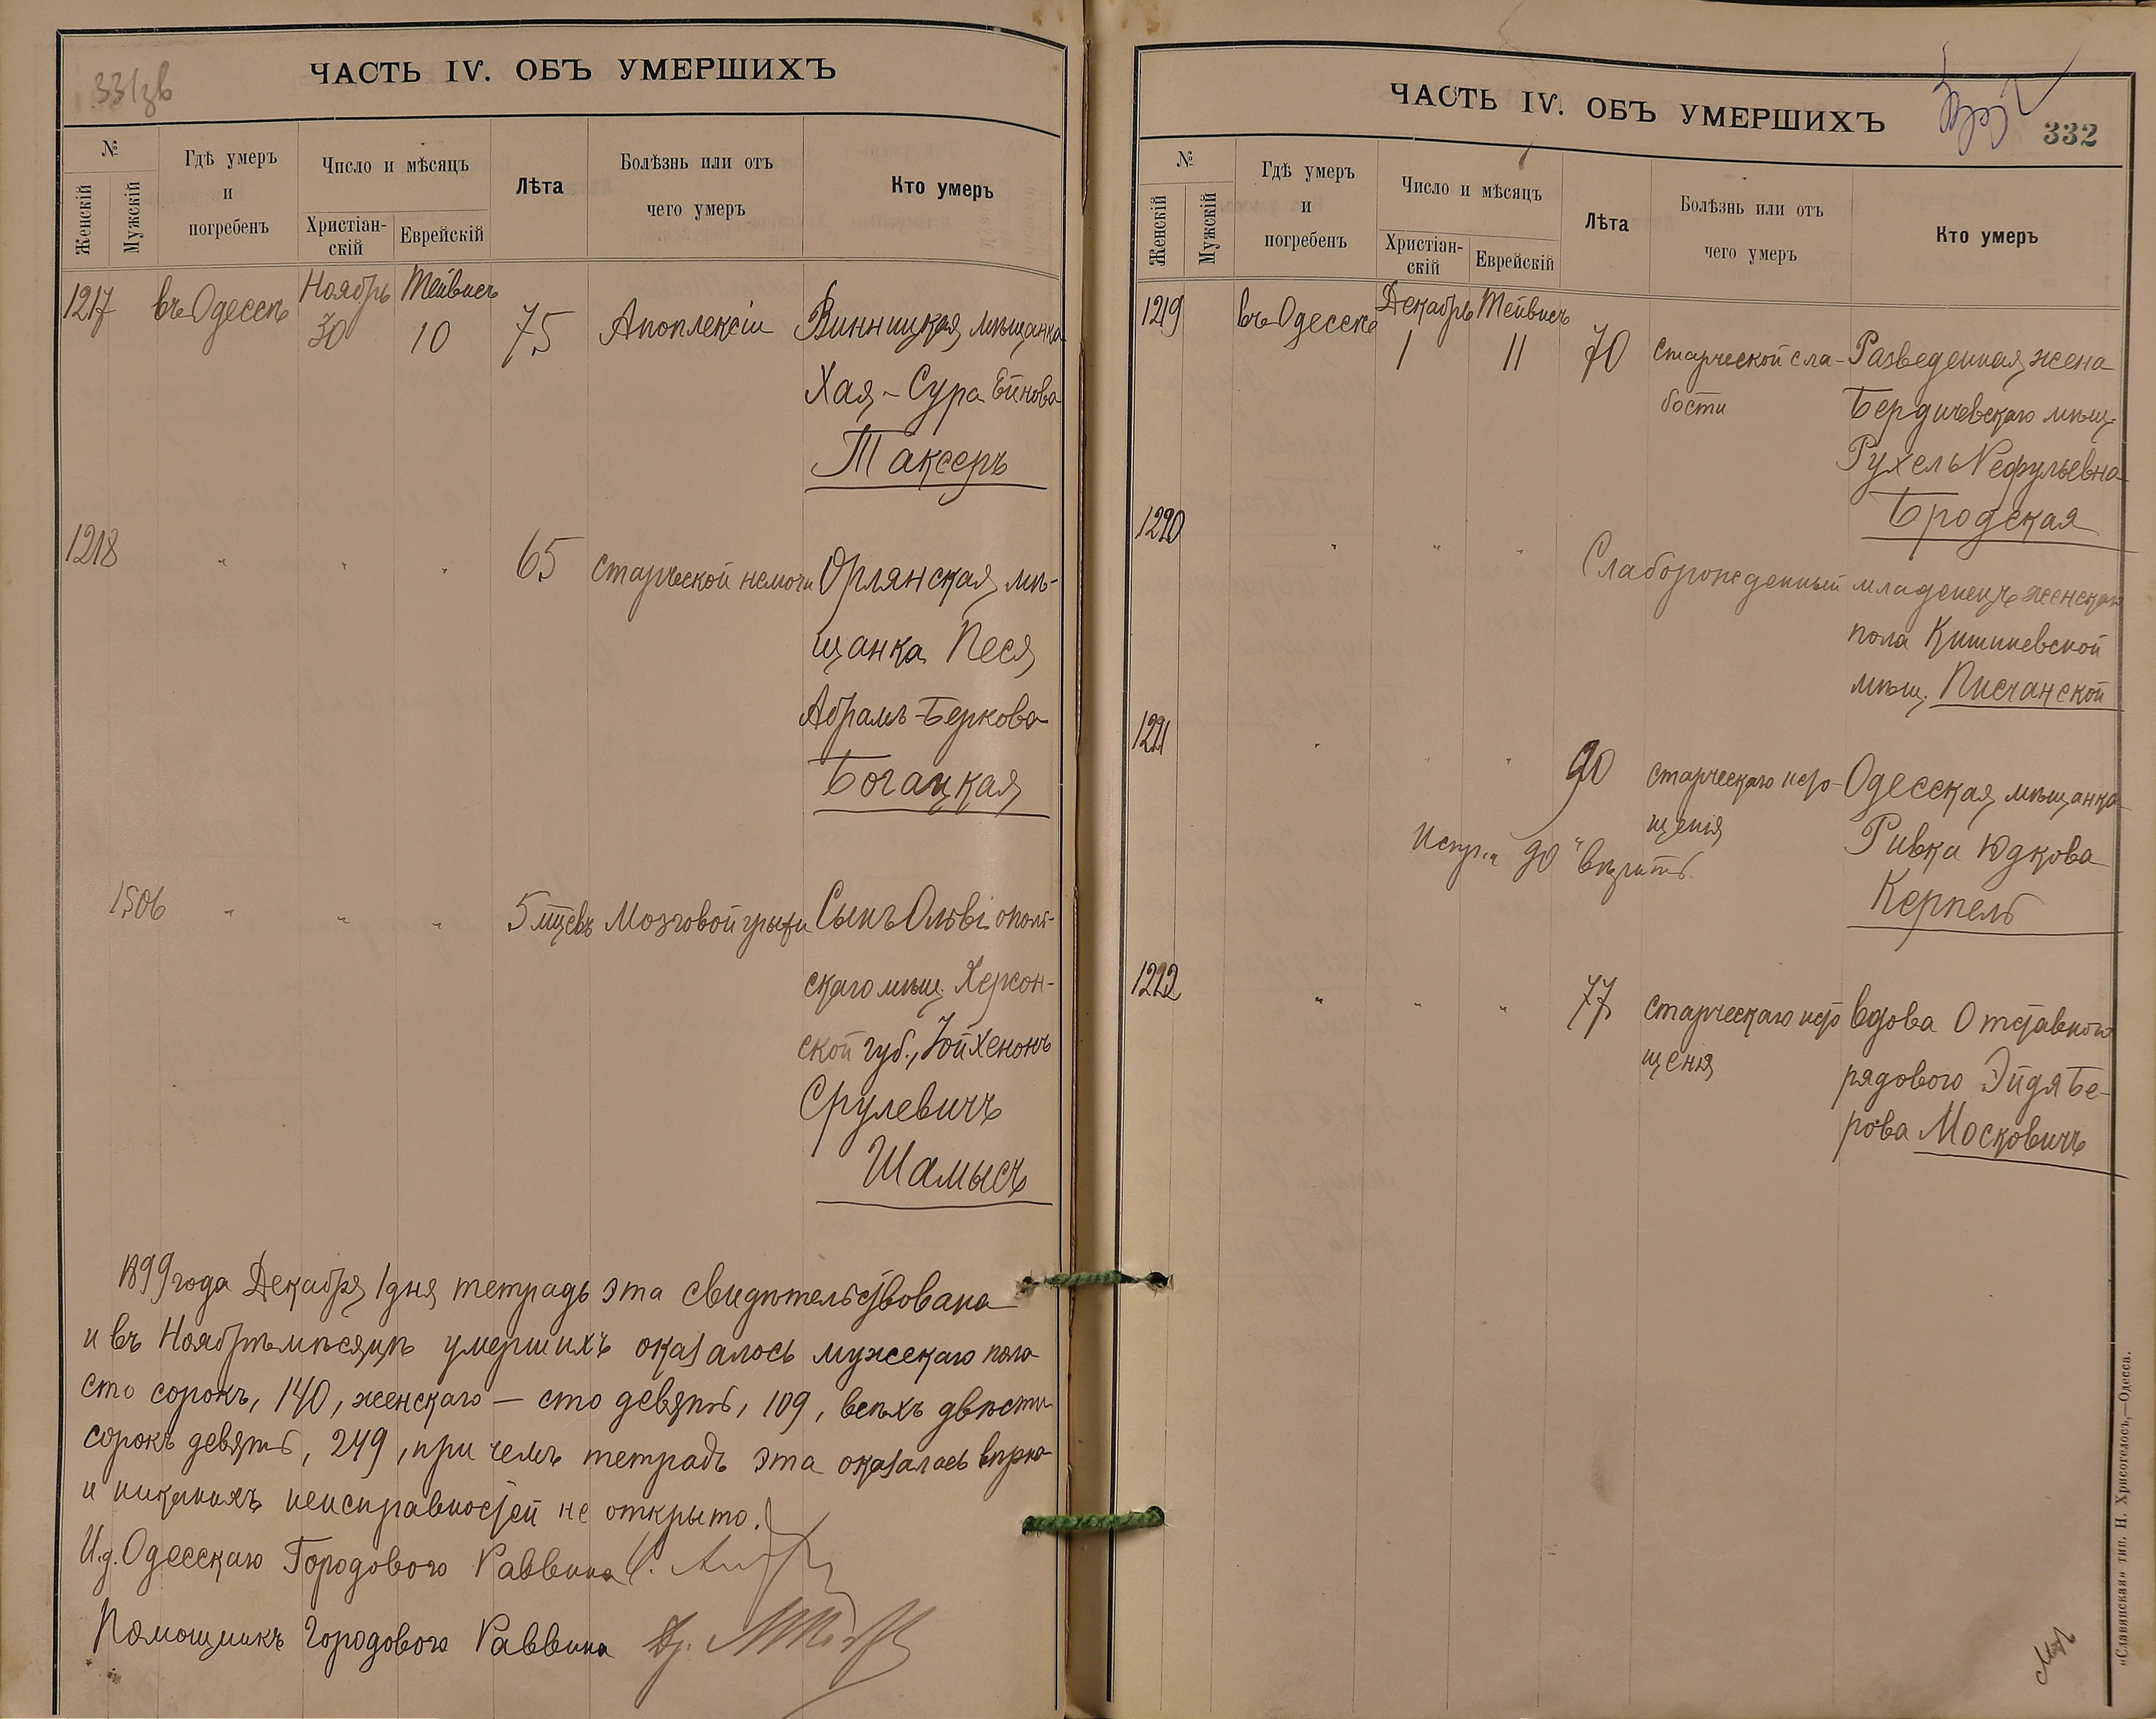 331зв
ЧАСТЬ IV. ОБЪ УМЕРШИХЪ
№
Женскій
Мужскій
Гдѣ умеръ
и
погребенъ
Число и мѣсяцъ
Христіан-
скій
Еврейскій
Лѣта
Болѣзнь или отъ
чего умеръ
Кто умеръ
1217 въ Одессѣ Ноябрь 30 Тейвисъ 10 75 Апоплексіи Винницкая мѣщанка
Хая-Сура Ейнова
Таксеръ
1218 " " " 65 старческой немочи Орлянская мѣ-
щанка Песя
Абрамъ-Беркова
Богацкая
1506 " " " 5 мцевъ Мозговой грыжи Сынъ Ольвіополь-
скаго мѣщ. Херсон-
ской губ., Іойхенонъ
Срулевичъ
Шамысъ
1899 года Декабря 1 дня тетрадь эта свидѣтельствована
и въ Ноябрѣ мѣсяцѣ умершихъ оказалось мужскаго пола
сто сорокъ, 140, женскаго — сто девять, 109, всѣхъ двѣсти
сорокъ девять, 249, при чемъ тетрадь эта оказалась вѣрна
и никакихъ неисправностей не открыто.
И.д. Одесскаго Городового Раввина
Помощникъ Городового Раввина
ЧАСТЬ IV. ОБЪ УМЕРШИХЪ
332
№
Женскій
Мужскій
Гдѣ умеръ
и
погребенъ
Число и мѣсяцъ
Христіан-
скій
Еврейскій
Лѣта
Болѣзнь или отъ
чего умеръ
Кто умеръ
1219 въ Одессѣ Декабрь 1 Тейвисъ 11 70 старческой сла-
бости
Разведенная жена
Бердичевскаго мѣщ.
Рухель Нефульевна
Бродская
1220 " " "
Слаборожденный младенецъ женскаго
пола Кишиневской
мѣщ. Писчанской
1221 " " " 90 старческаго исто-
щенія
Одесская мѣщанка
Ривка Юдкова
Керпель
Испр. "90" вѣрить.
1222 " " " 77 старческаго исто
щенія
вдова Отставного
рядового Эйдя Бе-
рова Московичъ
«Славянская» тип. Н. Хрисогелосъ,—Одесса.